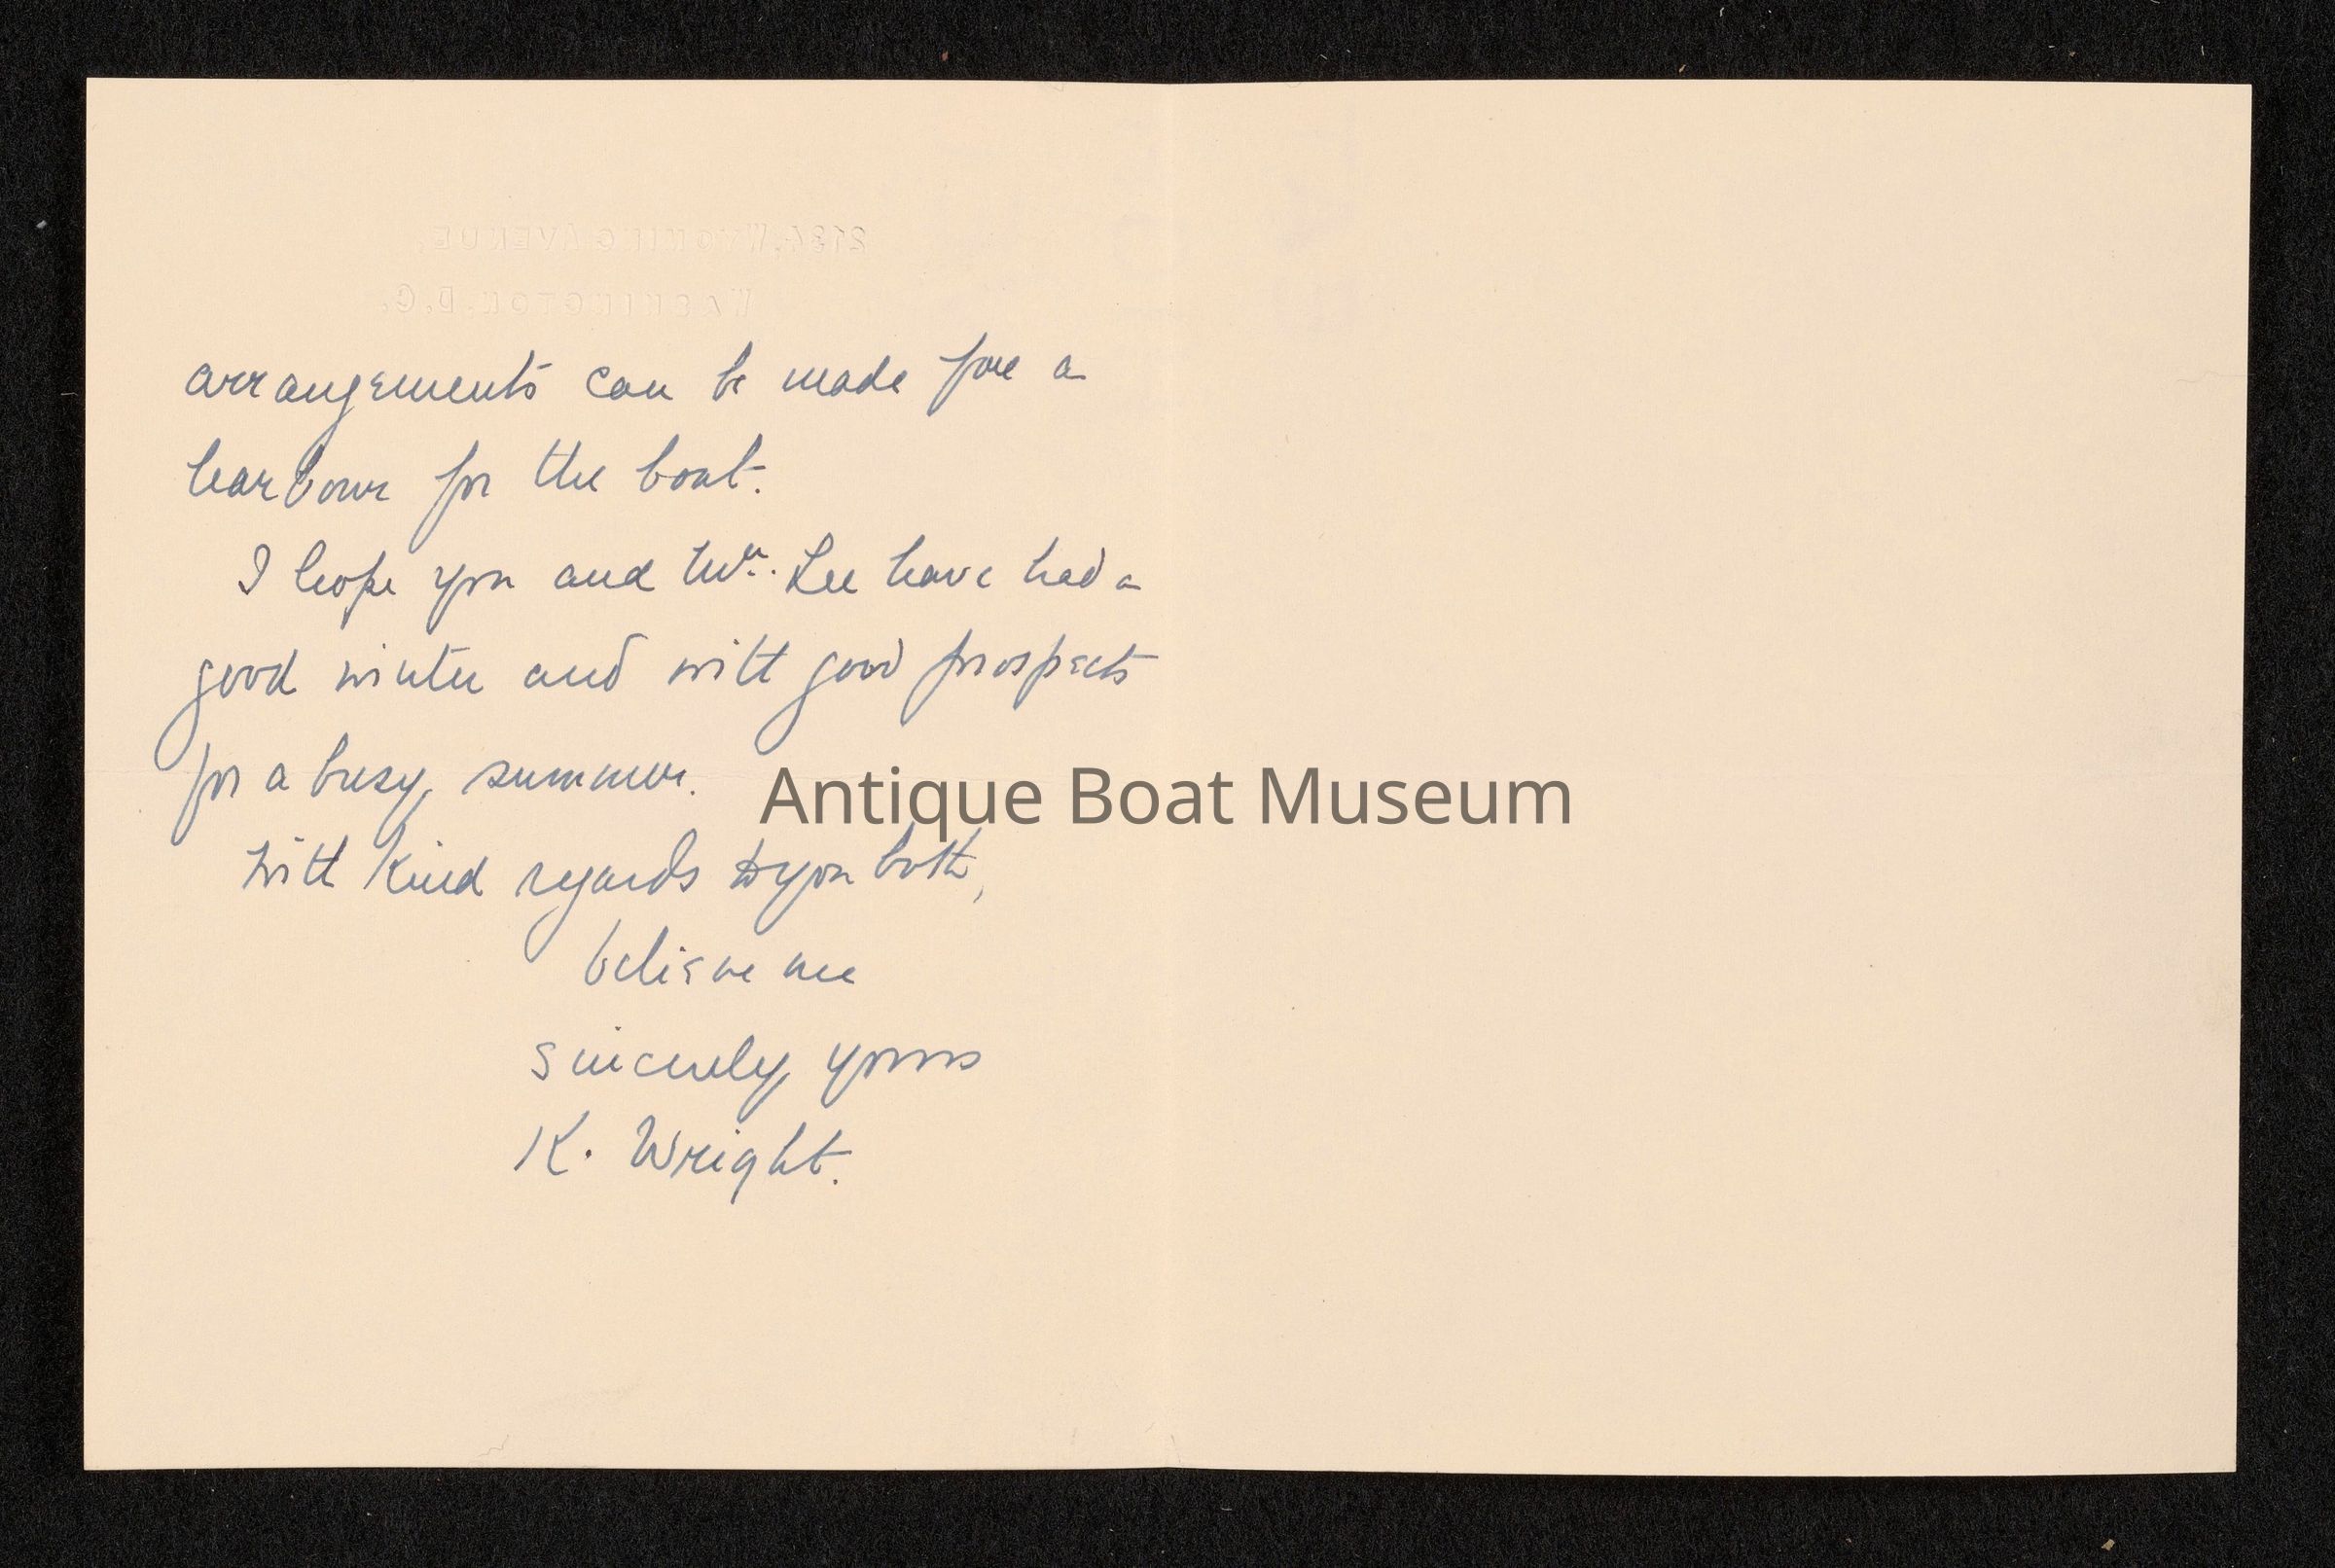 2134 WYOMING AVENUE,
WASHINGTON. D.C.
arrangements can be made for a
harbour for the boat.
I hope you and Mr. Lee have had a
good winter and with good prospects
for a busy summer.
Antique Boat Museum
With kind regards to you both,
believe me
sincerely yours
K. Wright.